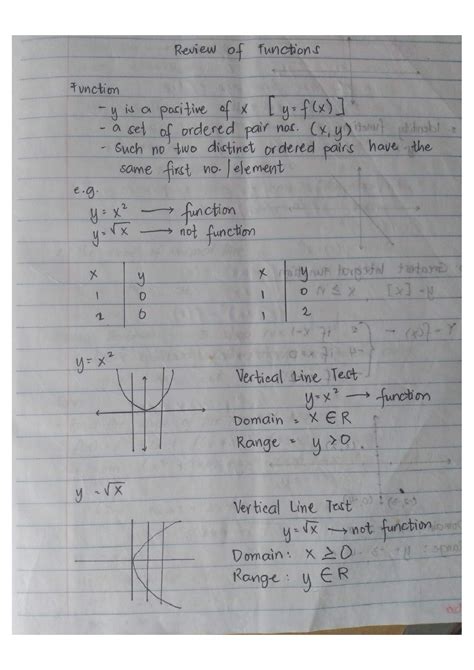 Review of Functions
Function
- y is a positive of x [y=f(x)]
- a set of ordered pair nos. (x,y)
- such no two distinct ordered pairs have the
same first no./element
e.g.
y = x² ⟶ function
y = √x ⟶ not function
x | y
1 | 0
2 | 0
x | y
1 | 0
1 | 2
y = x²
Vertical Line Test
y = x² ⟶ function
Domain = x ∈ R
Range = y > 0
y = √x
Vertical Line Test
y = √x ⟶ not function
Domain: x ≥ 0
Range: y ∈ R